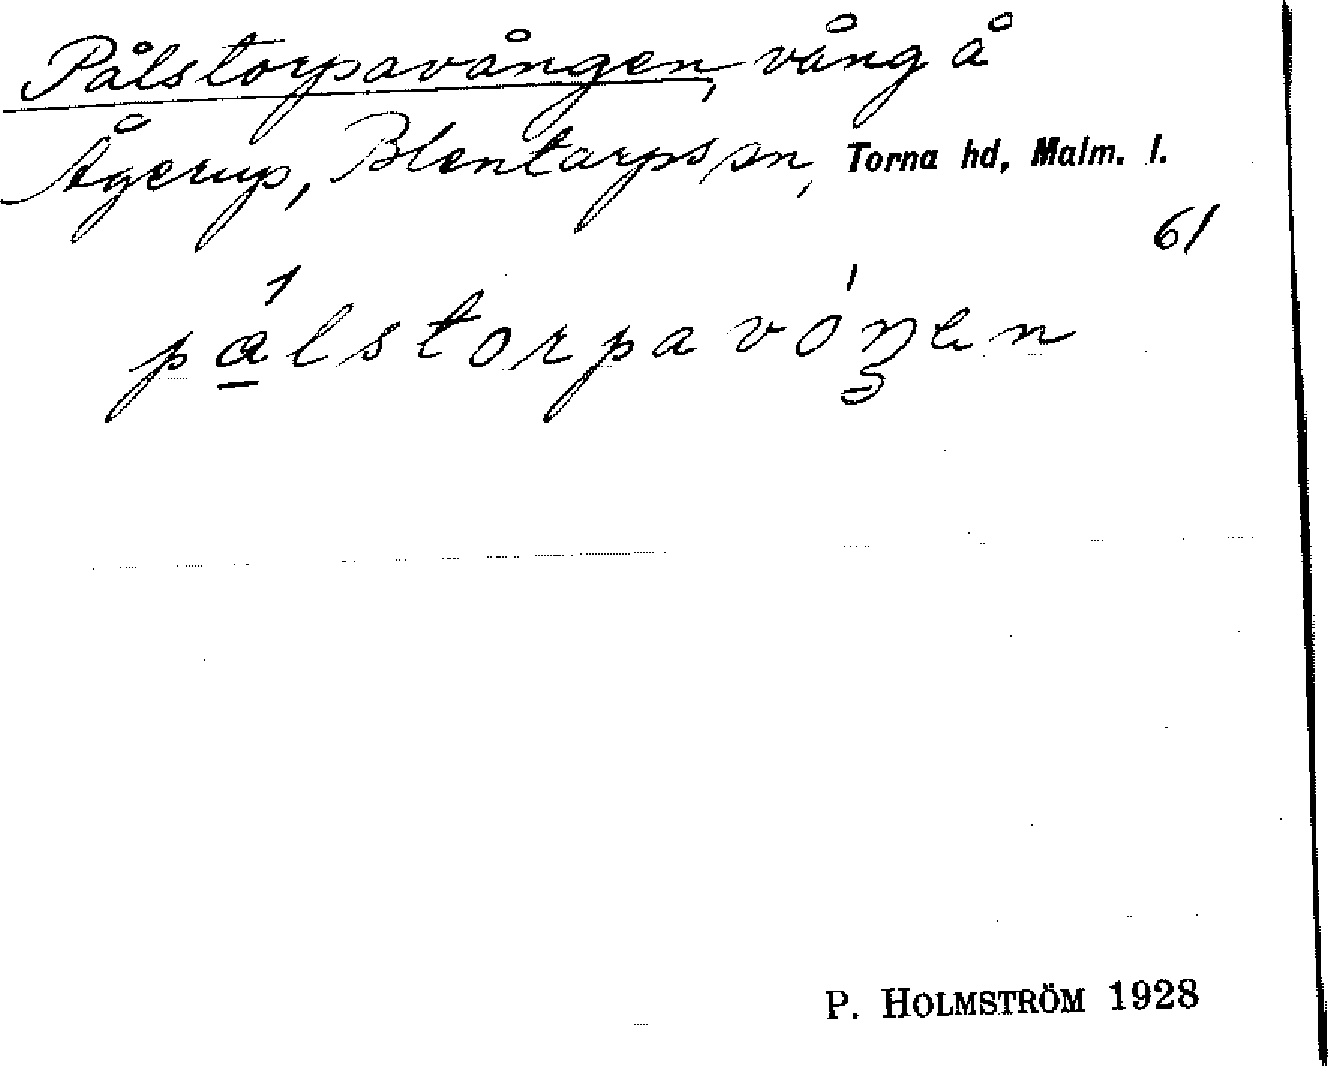 Pålstorpavången, vång å
Ågerup, Blentarps sn, Torna hd, Malm. l.
61
pålstorpavóŋen
P. HOLMSTRÖM 1928